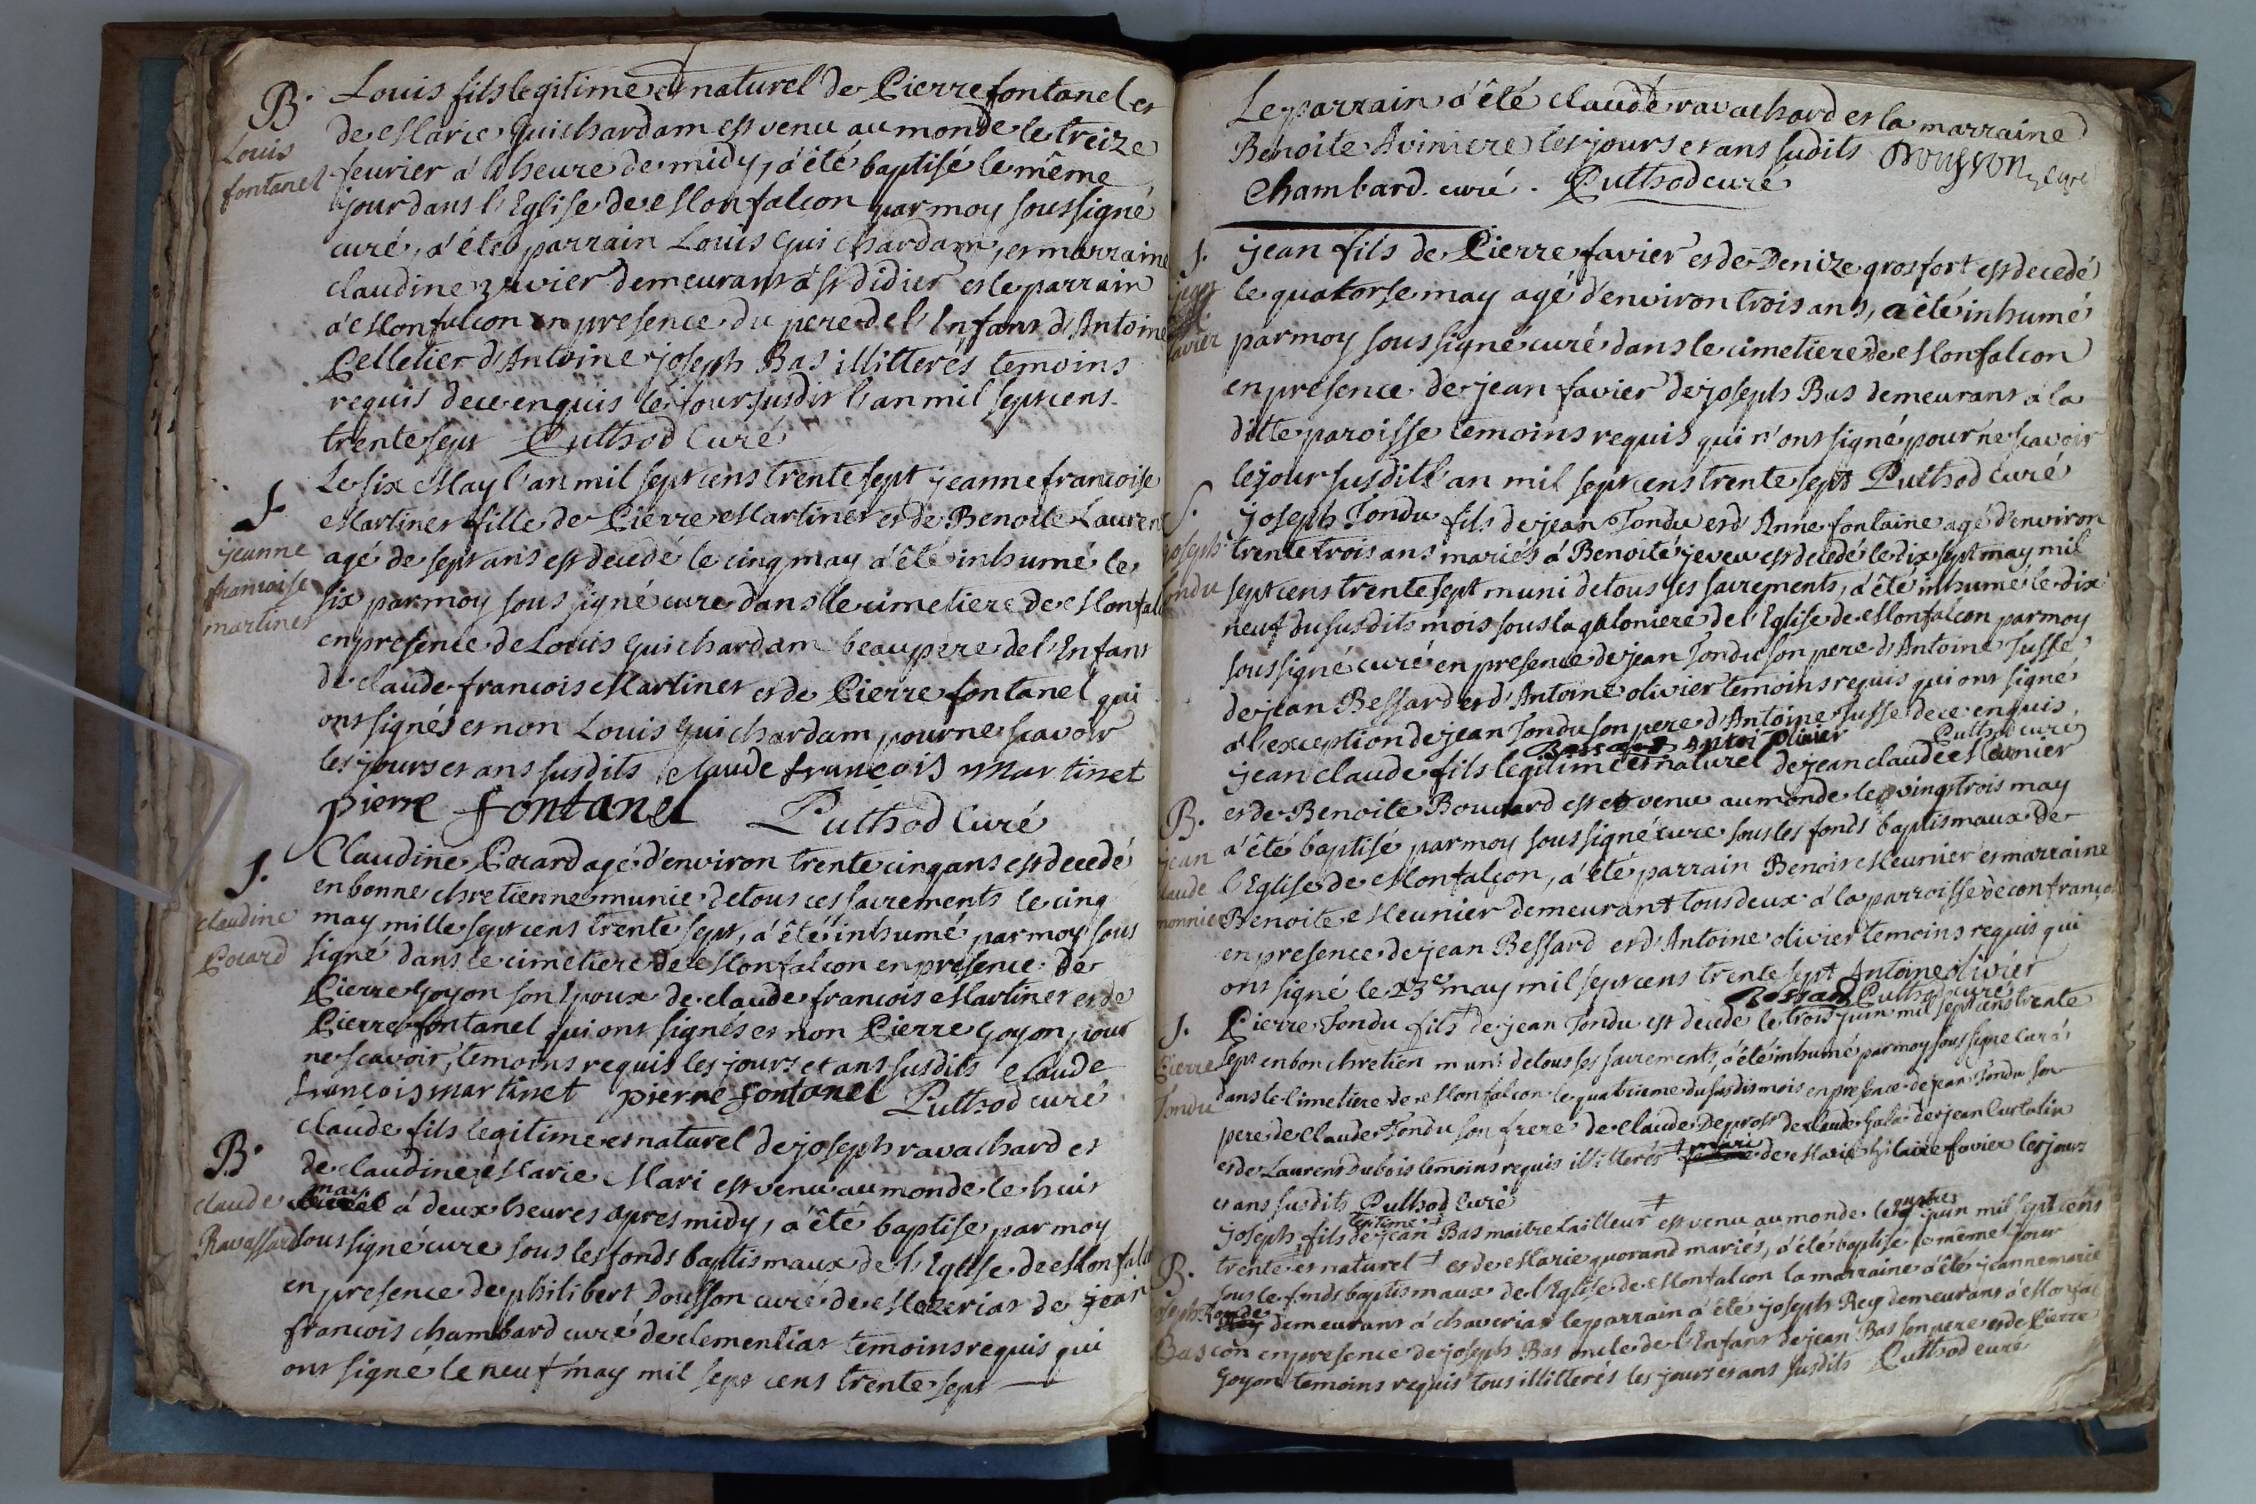 B. Louis fils legitime et naturel de Pierre fontanel et
Louis de Marie Guichardam est venu au monde le treize
fontanel feurier á l'heure de midy, á été baptisé le même
jour dans l'Eglise de Monfalcon par moy soussigné
curé, á été parrain Louis Guichardam, et marraine
claudine ravier demeurans á st didier et le parrain
á Monfalcon en presence du pere de l'Enfans d'Antoine
Pelletier d'Antoine joseph Bas illitterés temoins
requis de ce enquis le jour susdit l'an mil sept cens
trente sept Puthod Curé
Le six May l'an mil sept cens trente sept jeanne francoise
J. Martinet fille de Pierre Martinet et de Benoite Laurent
jeanne agé de sept ans est decedé le cinq may á été inhumé le
francoise six par moy sous signé curé dans le cimetiere de Monfal
martinet en presence de Louis Guichardam beaupere de l'Enfans
de claude francois Martinet et de Pierre fontanel qui
ont signés et non Louis Guichardam pour ne scavoir
les jours et ans susdits claude francois martinet
pierre fontanel Puthod Curé
J. Claudine Pocard agé d'environ trente cinq ans est decedé
en bonne chretienne munie de tous ces sacrements le cinq
claudine may mille sept cens trente sept, á été inhumé par moy sous
Pocard signé dans le cimetiere de Monfalcon en presence de
Pierre Goyon son Epoux de claude francois Martinet et de
Pierre fontanel qui ont signés et non Pierre Goyon pour
ne scavoir, temoins requis les jours et ans susdits claude
francois martinet pierre fontanel Puthod curé
claude fils legitime et naturel de joseph ravachard et
B. de claudine Marie Mari est venu au monde le huit
claude may á deux heures apres midy, á été baptisé par moy
Ravassard sous signé curé sous les fonds baptismaux de l'Eglise de Monfal
en presence de philibert Dousson curé de Mezerias de jean
francois chambard curé de clementias temoins requis qui
ont signé le neuf may mil sept cens trente sept
Le parrain á été claude ravachard et la marraine
Benoite Aviniere les jours et ans sudits Dousson curé
Chambard curé. Puthod curé
J. jean fils de Pierre favier et de Denize grosfort est decedé
jean le quatorse may agé d'environ trois ans, a été inhumé
favier par moy sous signé curé dans le cimetiere de Monfalcon
en presence de jean favier de joseph Bas demeurans á la
ditte paroisse temoins requis qui n'ont signé pour ne scavoir
le jour susdit l'an mil sept cens trente sept Puthod curé
J. joseph Tondu fils de jean Tondu et d'Anne fontaine agé d'environ
joseph trente trois ans mariés á Benoite jeveu est decedé le dix sept may mil
Tondu sept cens trente sept muni de tous ses sacrements, á été inhumé le dix
neuf du susdits mois sous la galoniere de l'Eglise de Monfalcon par moy
sous signé curé en presence de jean Tondu son pere d'Antoine Tusse
de jean Bessard et d'Antoine olivier temoins requis qui ont signé
á l'exception de jean Tondu son pere d'Antoine Tusse de ce enquis,
Bessard Antoi olivier Puthod curé
jean claude fils legitime et naturel de jean claude Meunier
et de Benoite Bouvard est venu au monde le vingt trois may
B. á été baptisé par moy sous signé curé sous les fonts baptismaux de
jean l'Eglise de Monfalcon, á été parrain Benoit Meunier et marraine
claude
monnier Benoite Meunier demeurant tous deux á la parroisse de confrançon
en presence de jean Bessard et d'Antoine olivier temoins requis qui
ont signé le 23e may mil sept cens trente sept Antoine olivier
Bessard Puthod curé
J. Pierre Tondu fils de jean Tondu est decedé le trois juin mil sept cens trente
Pierre sept en bon chretien muni de tous ses sacrements, á été inhumé par moy sous signé curé
Tondu dans le Cimetiere de Monfalcon le quatrieme du susdis mois en presence de jean Tondu son
pere de Claude Tondu son frere de claude Depross de claude Gala de jean Curtalin
et de Laurens Dubois temoins requis illitterés ‡ mari de Marie hylaire favier les jours
et ans susdits Puthod Curé
joseph fils legitime ‡ de jean Bas maitre tailleur ‡ est venu au monde le quatre juin mil sept cens
trente et naturel ‡ et de Marie quorand mariés, á été baptisé le même jour
B. sous le fonds baptismaux de l'Eglise de Monfalcon la marraine á été jeanne marie
joseph demeurans á chaverias le parrain á été joseph Rey demeurans á Monfal
Bas con en presence de joseph Bas oncle de l'Enfans de jean Bas son pere et de Pierre
Goyon temoins requis tous illitterés les jours et ans susdits Puthod curé